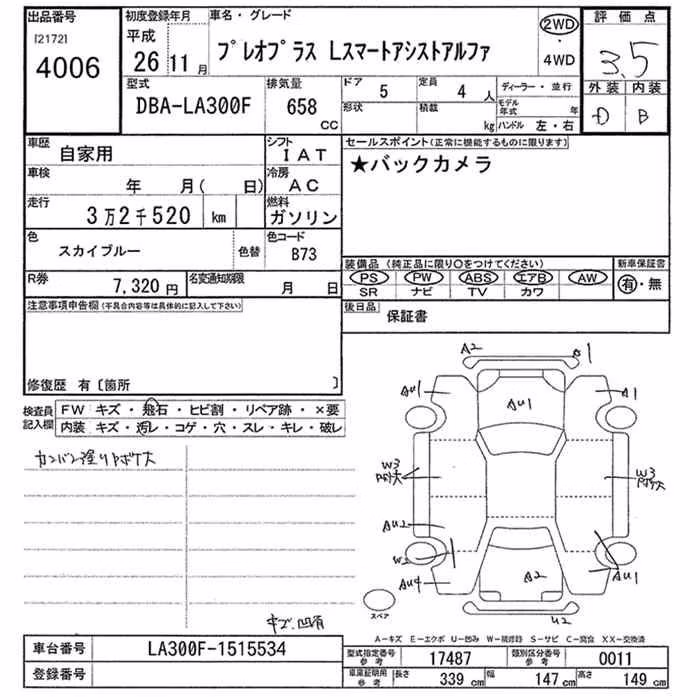 出品番号
[2172]
4006
初度登録年月
平成
26 11 月
車名・グレード
プレオプラス Lスマートアシストアルファ
2WD
・
4WD
評価点
3.5
外装 内装
D B
型式
DBA-LA300F
排気量
658
cc
ドア 5
定員 4 人
形状
積載 kg
ディーラー・並行
モデル年式 年
ハンドル 左・右
車歴
自家用
シフト
IAT
車検
年 月( 日)
冷房
AC
走行
3万2千520 km
燃料
ガソリン
色
スカイブルー
色替
色コード
B73
R券
7,320 円
名変通知期限
月 日
セールスポイント(正常に機能するものに限ります)
★バックカメラ
装備品 (純正品に限り○をつけてください)
新車保証書
PS PW ABS エアB AW
SR ナビ TV カワ
有・無
後日品
保証書
注意事項申告欄(不具合内容等は具体的に記入して下さい)
修復歴 有〔箇所 〕
検査員
記入欄
FW キズ・飛石・ヒビ割・リペア跡・×要
内装 キズ・汚レ・コゲ・穴・スレ・キレ・破レ
A2
AU1
A1
AU1
W3
W3
AU2
W2
AU4
A2
AU1
U2
スペア
A-キズ E-エクボ U-凹み W-補修跡 S-サビ C-腐食 XX-交換済
車台番号
LA300F-1515534
登録番号
型式指定番号
参考
17487
類別区分番号
参考
0011
車庫証明用
参考
長さ 339 cm
幅 147 cm
高さ 149 cm